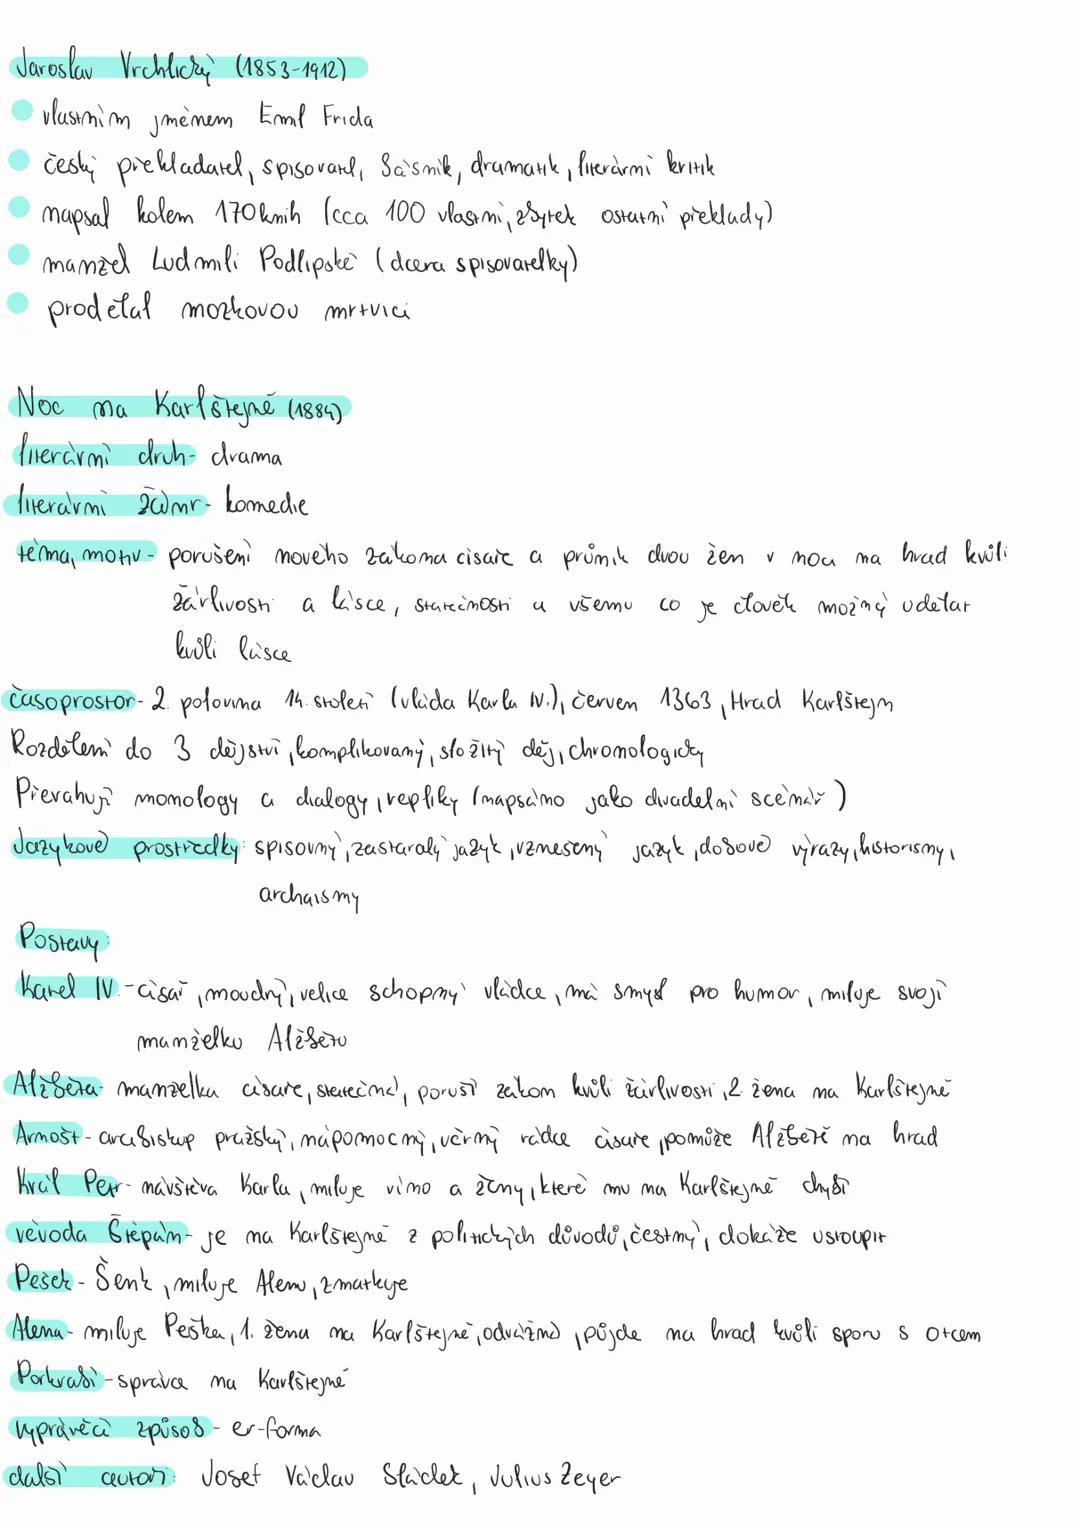 Jaroslav Vrchlický (1853-1912)
vlastním jménem Emil Frída
český překladatel, spisovatel, básník, dramatik, literární kritik
napsal kolem 170 knih (cca 100 vlastní, zbytek ostatní překlady)
manžel Ludmili Podlipské (dcera spisovatelky)
prodělal mozkovou mrtvici
Noc na Karlštejně (1884)
literární druh- drama
literární žánr- komedie
téma, motiv- porušení nového zákona císaře a průnik dvou žen v noci na hrad kvůli
žárlivosti a lásce, statečnosti a všemu co je člověk možný udělat
kvůli lásce
časoprostor- 2. polovina 14. století (vláda Karla IV.), červen 1363, Hrad Karlštejn
Rozdělení do 3 dějství, komplikovaný, složitý děj, chronologicky
Převahují monology a dialogy, repliky (napsáno jako divadelní scénář)
Jazykové prostředky: spisovný, zastaralý jazyk, vznešený jazyk, dobové výrazy, historismy,
archaismy
Postavy:
Karel IV.-císař, moudrý, velice schopný vládce, má smysl pro humor, miluje svojí
manželku Alžbětu
Alžběta- manželka císaře, statečná, poruší zákon kvůli žárlivosti, 2. žena na Karlštejně
Arnošt- arcibiskup pražský, nápomocný, věrný rádce císaře, pomůže Alžbětě na hrad
Král Petr- návštěva Karla, miluje víno a ženy, které mu na Karlštejně chybí
vévoda Štěpán- je na Karlštejně z politických důvodů, čestný, dokáže ustoupit
Pešek- Šenk, miluje Alenu, zmatkuje
Alena- miluje Peška, 1. žena na Karlštejně, odvážná, půjde na hrad kvůli sporu s otcem
Purkrabí-správce na Karlštejně
vyprávěcí způsob- er-forma
další autoři: Josef Václav Sládek, Julius Zeyer